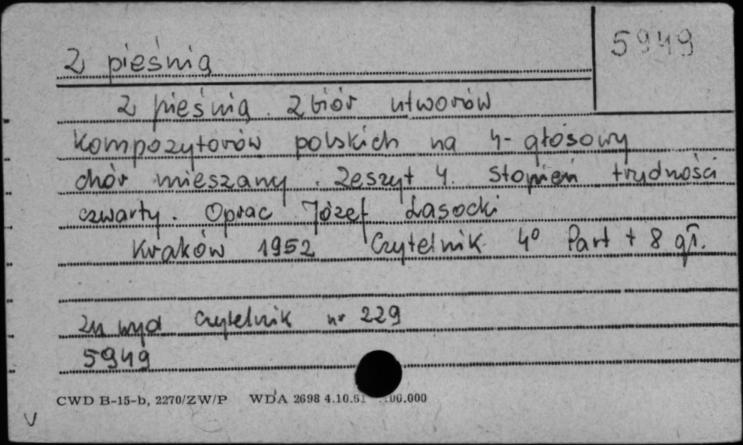 5949
Z pieśnią
Z pieśnią. Zbiór utworów
kompozytorów polskich na 4-głosowy
chór mieszany. Zeszyt 4. Stopień trudności
czwarty. Oprac Józef Lasocki
Kraków 1952 Czytelnik 4° Part + 8 gł.
Czytelnik nr 229
5949
CWD B-15-b, 2270/ZW/P WDA 2698 4.10.61 .000
V